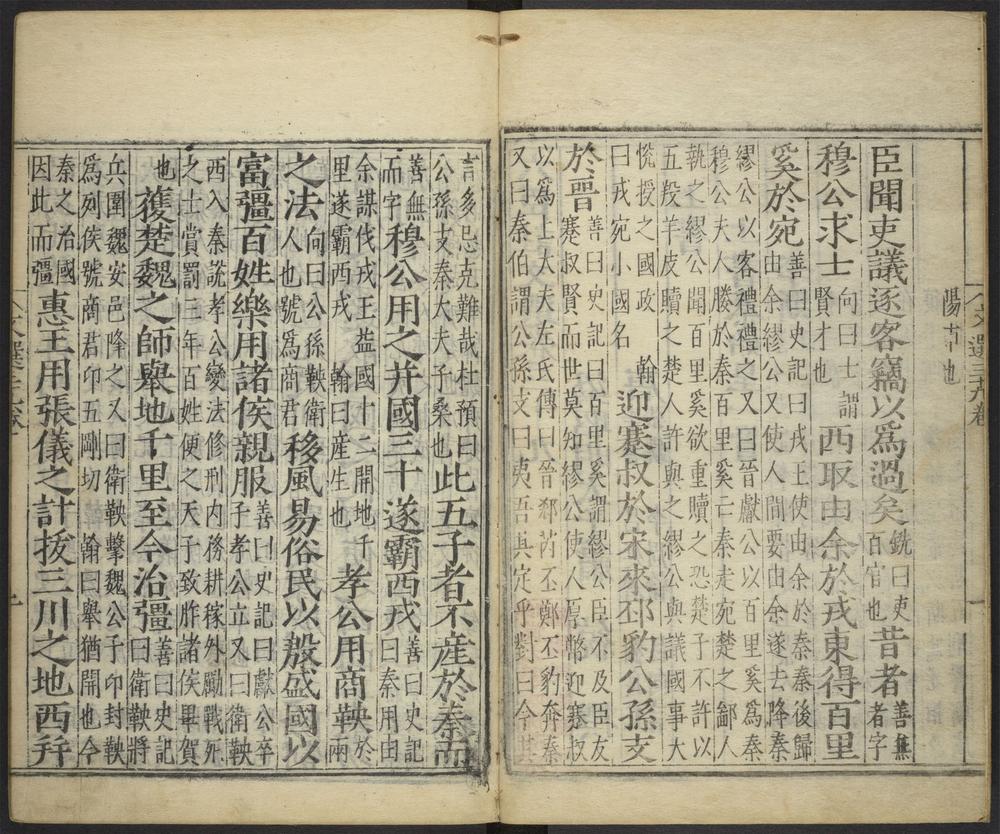 文選三十九卷 一
臣聞吏議逐客竊以爲過矣銑曰吏百官也昔者善無者字
穆公求士向曰士謂賢才也西取由余於戎東得百里
奚於宛善曰史記曰戎王使由余於秦秦後歸由余繆公又使人間要由余遂去降秦
繆公以客禮禮之又曰晉獻公以百里奚爲秦
穆公夫人媵於秦百里奚亡秦走宛楚之鄙人
執之繆公聞百里奚欲重贖之恐楚子不許以
五羖羊皮贖之楚人許與之繆公與議國事大
悅授之國政 翰曰戎宛小國名迎蹇叔於宋來邳豹公孫支
於晉善曰史記曰百里奚謂繆公臣不及臣友蹇叔賢而世莫知繆公使人厚幣迎蹇叔
以爲上大夫左氏傳曰晉郤芮丕鄭丕豹奔秦
又曰秦伯謂公孫支曰夷吾其定乎對曰今其
言多忌克難哉杜預曰公孫支秦大夫子桑也此五子者不產於秦而
善無而字穆公用之并國三十遂霸西戎善曰史記曰秦用由
余謀伐戎王益國十二開地千里遂霸西戎 翰曰産生也孝公用商鞅於兩
之法向曰公孫鞅衛人也號爲商君移風易俗民以殷盛國以
富彊百姓樂用諸侯親服善曰史記曰獻公卒子孝公立又曰衛鞅
西入秦說孝公變法修刑内務耕稼外勵戰死
之士賞罰三年百姓便之天子致胙諸侯畢賀
也獲楚魏之師舉地千里至今治彊善曰史記曰衛鞅將
兵圍魏安邑降之又曰衛鞅擊魏公子卬封鞅
爲列侯號商君卬五剛切 翰曰舉猶開也今
秦之治國因此而彊惠王用張儀之計拔三川之地西并